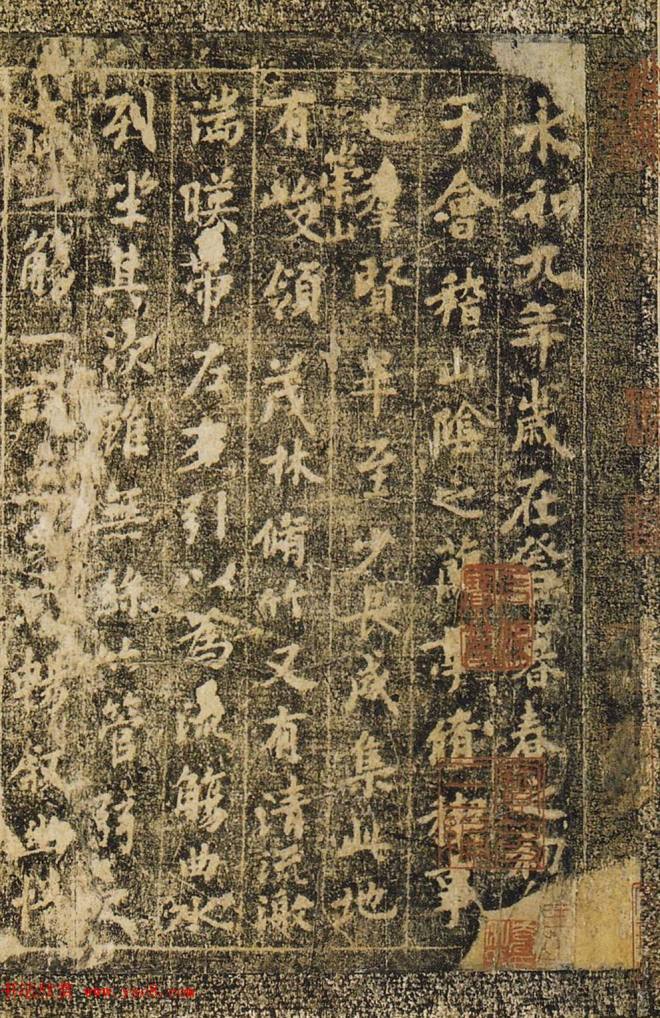 永和九年歲在癸暮春之初
于會稽山陰之蘭亭脩禊事
也羣賢畢至少長咸集此地
崇山
有峻領茂林脩竹又有清流激
湍暎帶左右引以為流觴曲水
列坐其次雖無絲竹管弦之
盛一觴一詠亦足以暢叙幽情
www.yac8.com